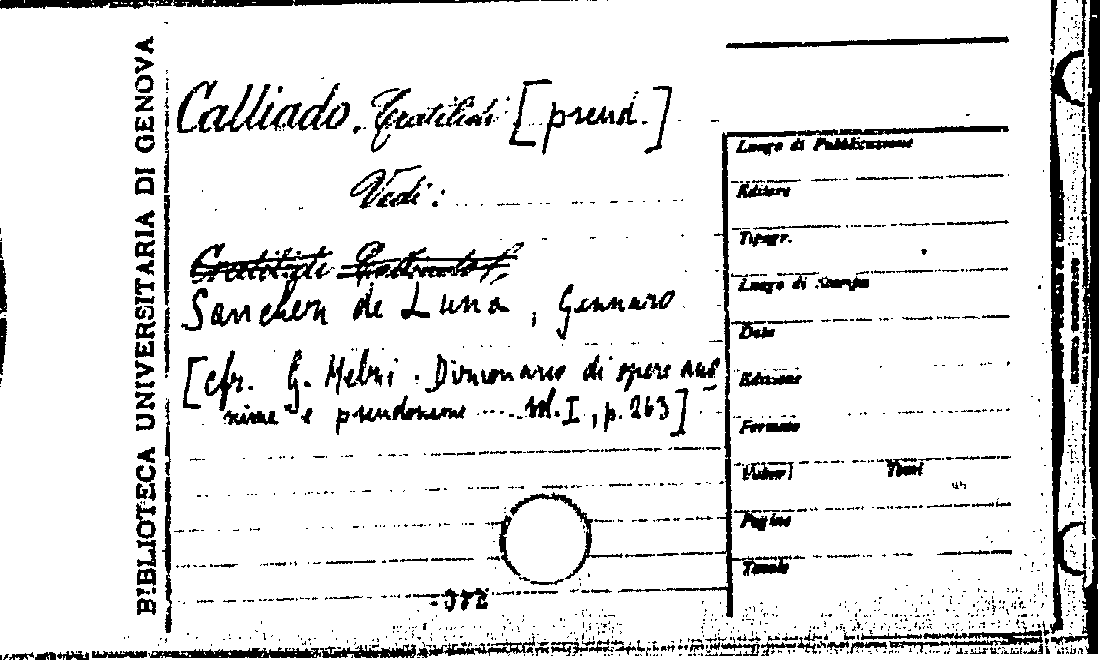 BIBLIOTECA UNIVERSITARIA DI GENOVA
Calliado, Gratiliano [pseud.]
Vedi:
Sanchez de Luna, Gennaro
[cfr. G. Melzi. Dizionario di opere ano
nime e pseudonime .... vol. I, p. 263]
Luogo di Pubblicazione
Editore
Tipogr.
Luogo di Stampa
Data
Edizione
Formato
Volumi Tomi
Pagine
Tavole